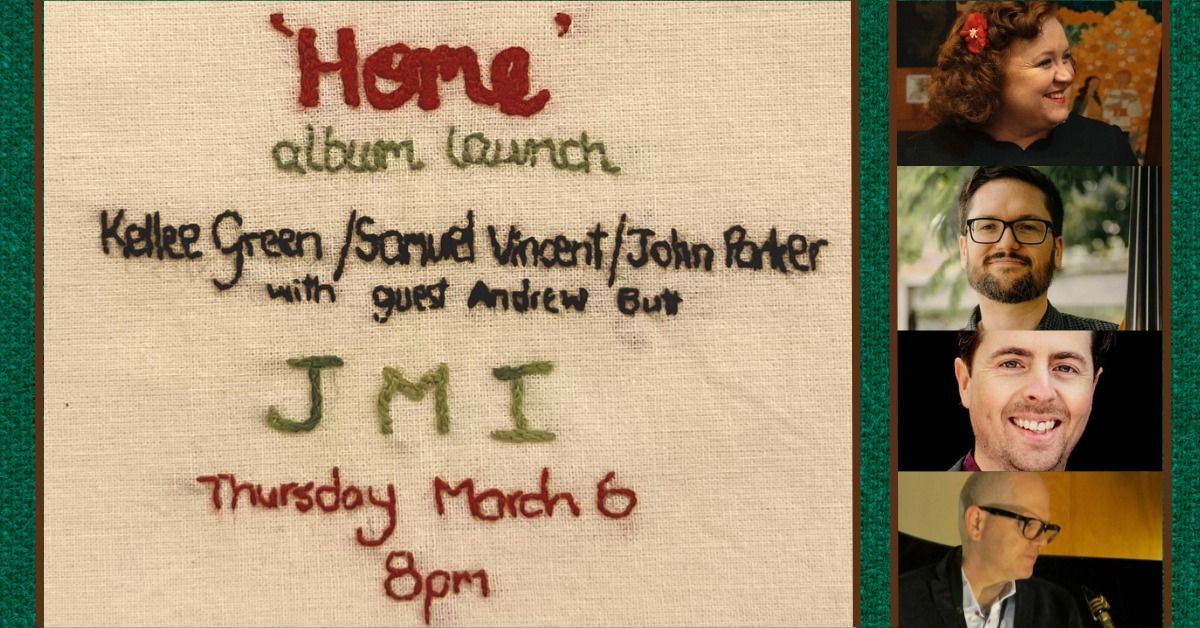 'Home'
album launch
Kellee Green/Samuel Vincent/John Parker
with guest Andrew Butt
JMI
Thursday March 6
8pm